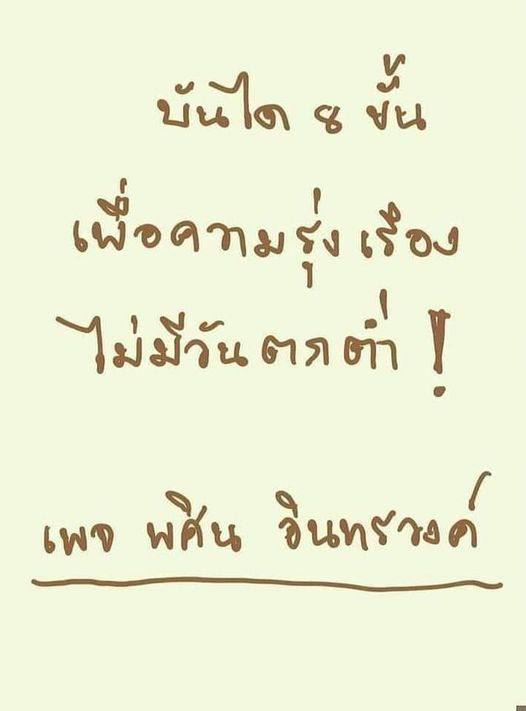 บันได 8 ขั้น
เพื่อความรุ่งเรือง
ไม่มีวันตกต่ำ !
เพจ พศิน อินทรวงค์